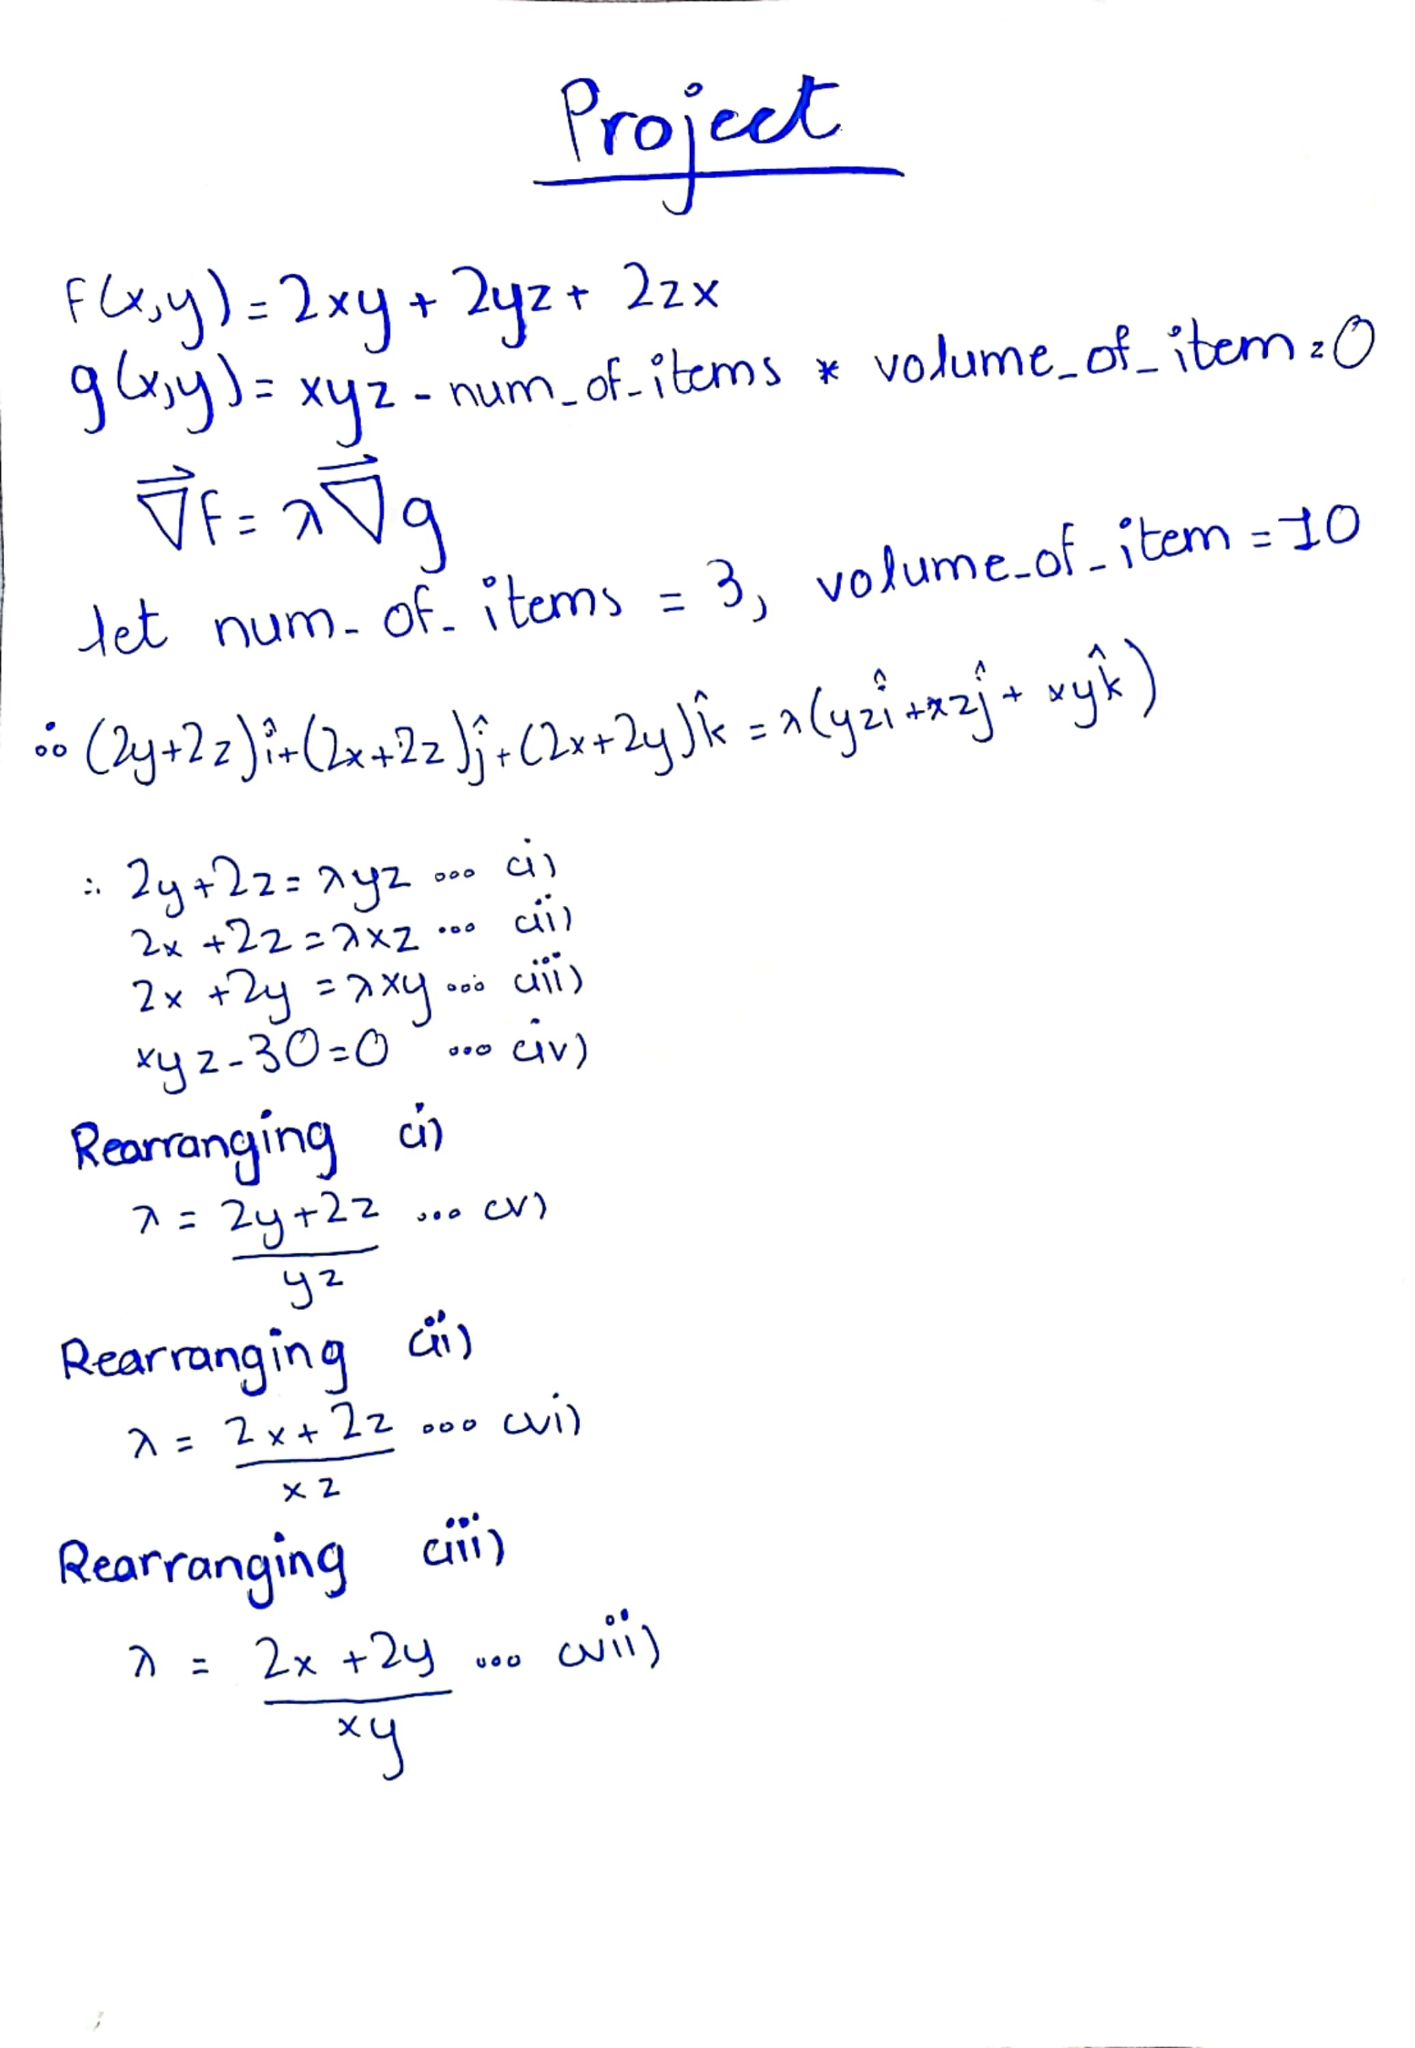 Project
F(x,y) = 2xy + 2yz + 2zx
g(x,y) = xyz - num_of_items * volume_of_item = 0
∇⃗F = λ∇⃗g
let num_of_items = 3, volume_of_item = 10
∴ (2y+2z)î + (2x+2z)ĵ + (2x+2y)k̂ = λ(yzî + xzĵ + xyk̂)
∴ 2y+2z = λyz ... (i)
2x + 2z = λxz ... (ii)
2x + 2y = λxy ... (iii)
xyz - 30 = 0 ... (iv)
Rearranging (i)
λ = 2y+2z ... (v)
yz
Rearranging (ii)
λ = 2x + 2z ... (vi)
xz
Rearranging (iii)
λ = 2x + 2y ... (vii)
xy